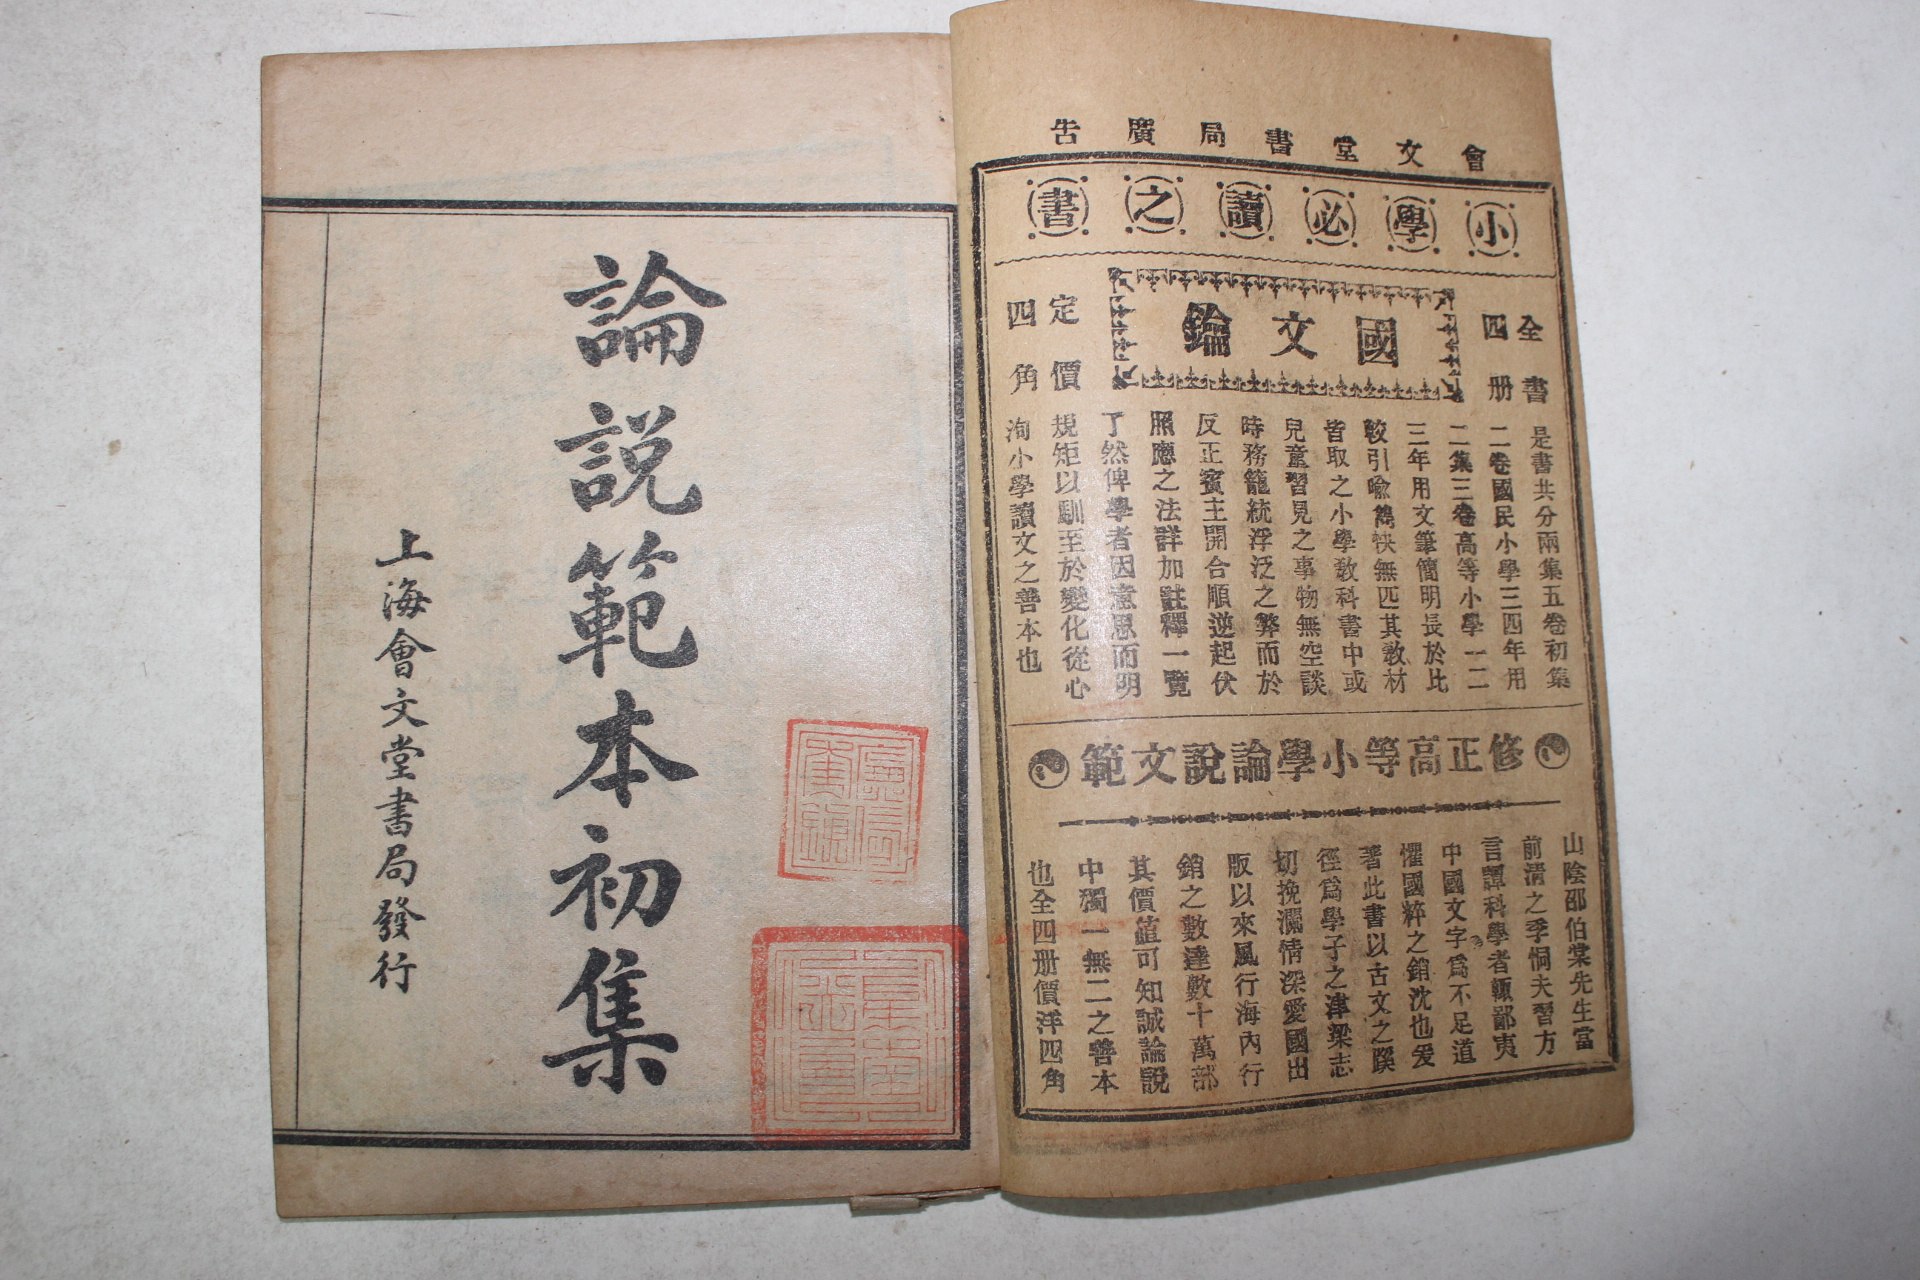 會文堂書局廣告
小學必讀之書
全書
四册
國文鑰
定價
四角
是書共分兩集五卷初集
二卷國民小學三四年用
二集三卷高等小學一二
三年用文筆簡明長於比
較引喩雋快無匹其敎材
皆取之小學敎科書中或
兒童習見之事物無空談
時務籠統浮泛之弊而於
反正賓主開合順逆起伏
照應之法詳加註釋一覽
了然俾學者因意思而明
規矩以馴至於變化從心
洵小學讀文之善本也
修正高等小學論說文範
山陰邵伯棠先生當
前清之季恫夫習方
言譚科學者輒鄙夷
中國文字爲不足道
懼國粹之銷沈也爰
著此書以古文之蹊
徑爲學子之津梁志
切挽瀾情深愛國出
版以來風行海內行
銷之數達數十萬部
其價值可知誠論說
中獨一無二之善本
也全四册價洋四角
論說範本初集
上海會文堂書局發行